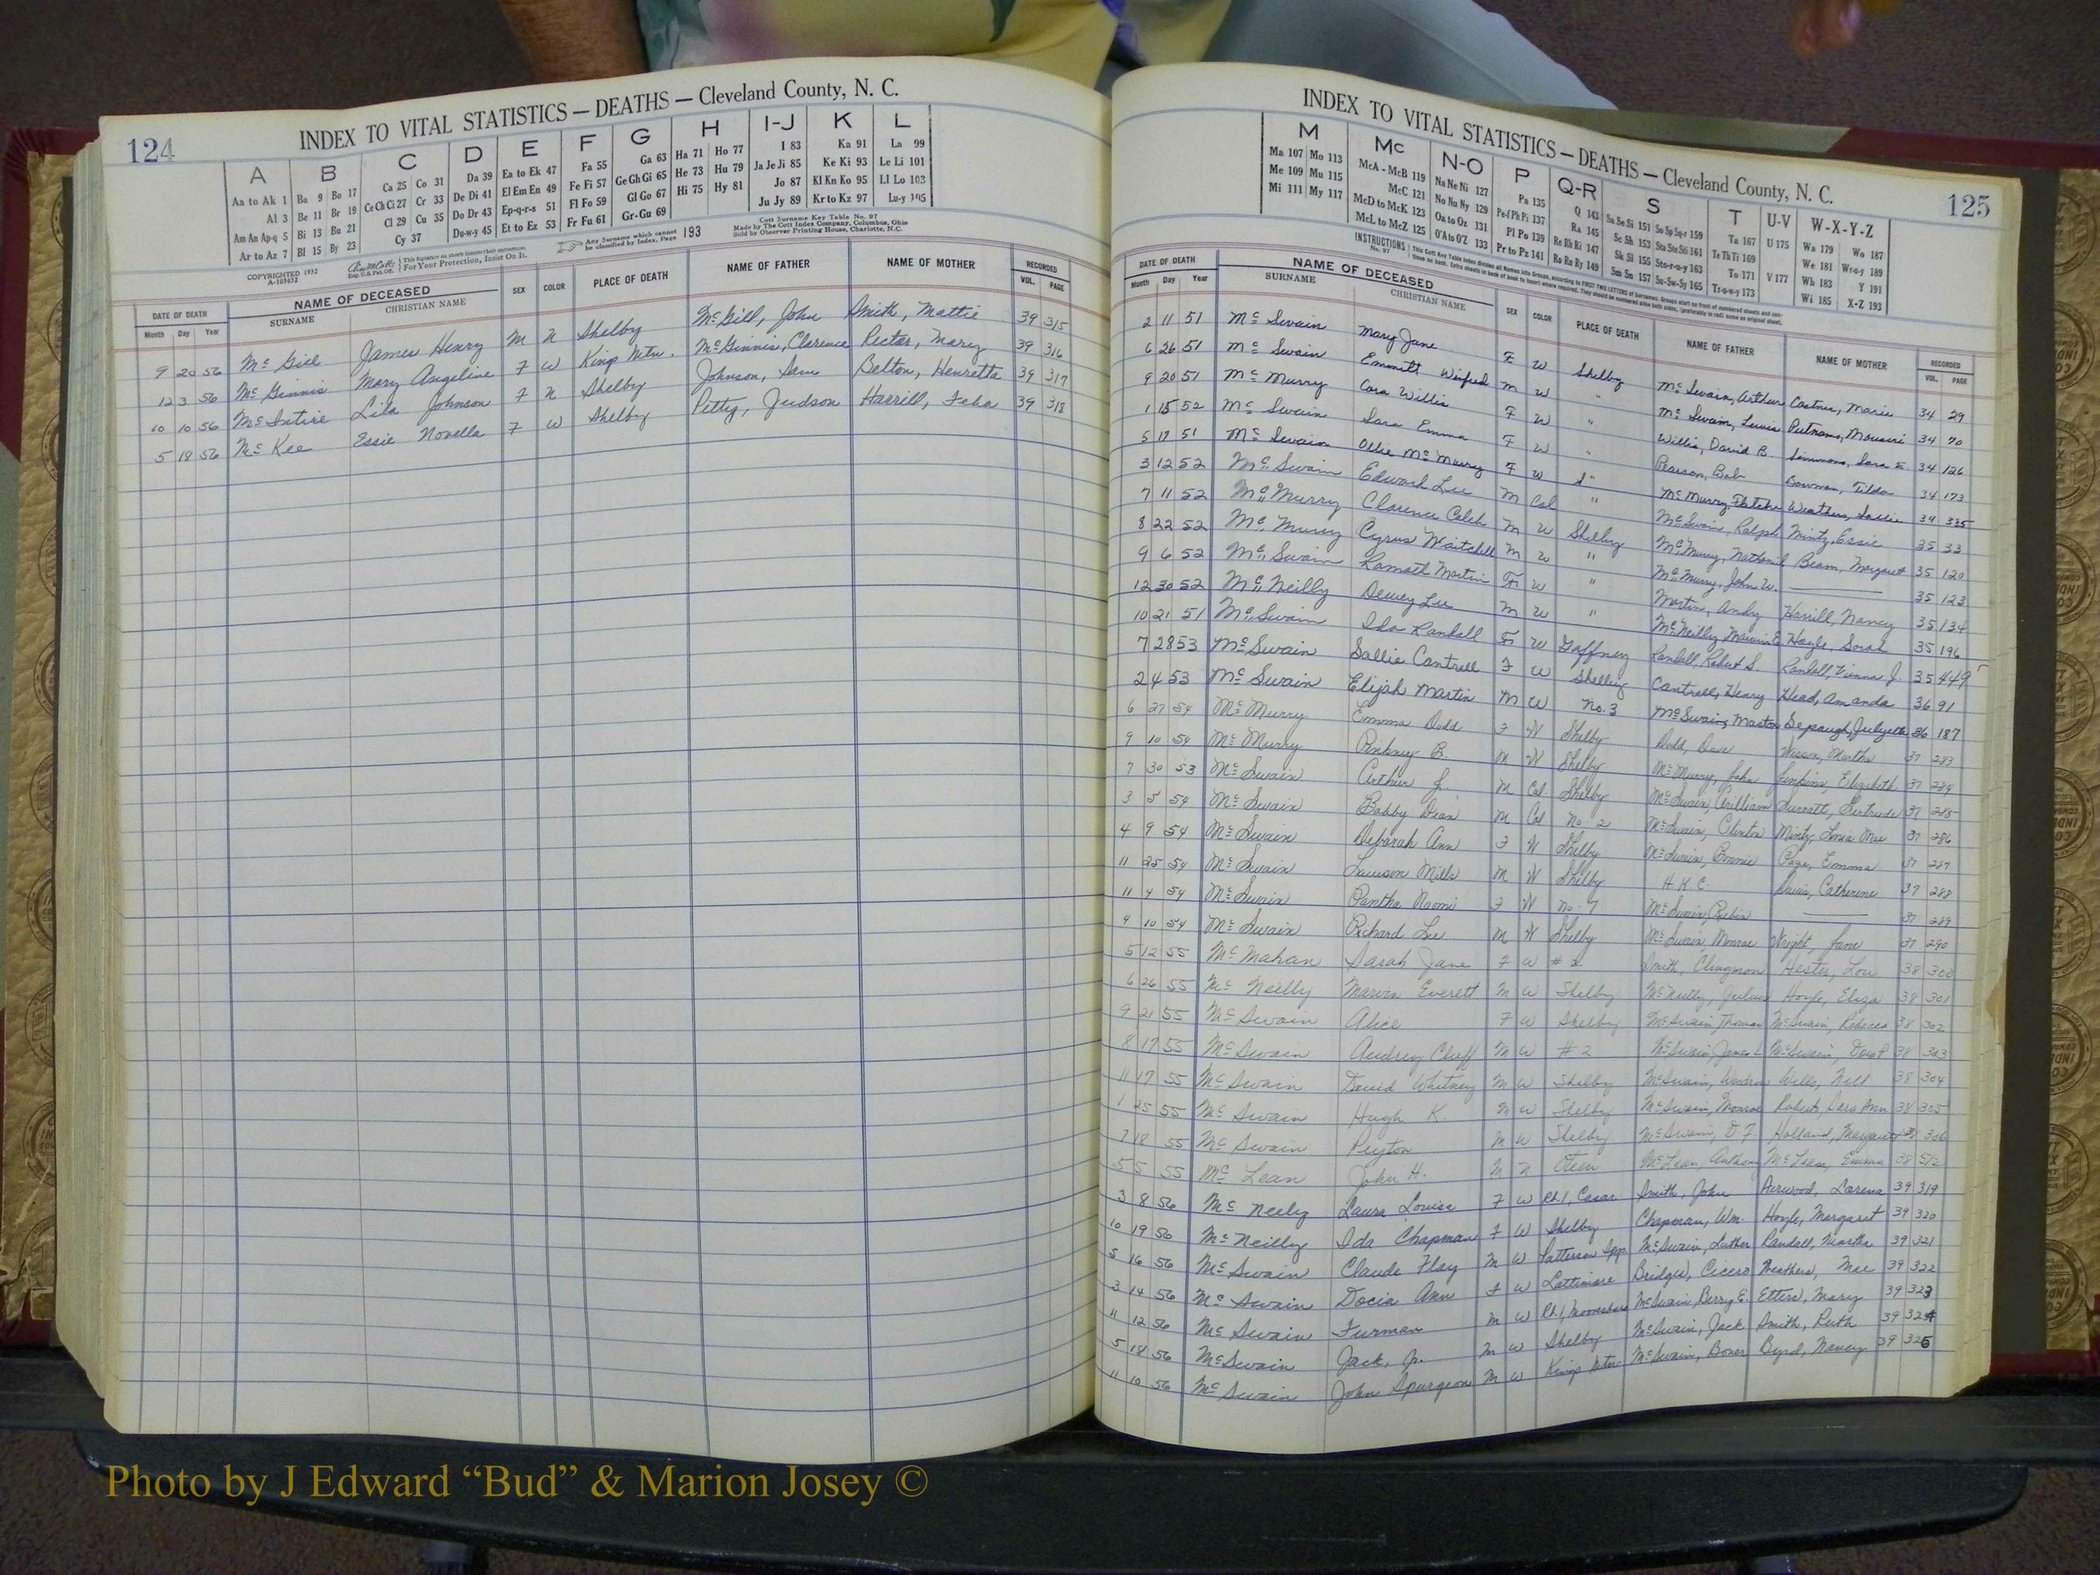 124
INDEX TO VITAL STATISTICS — DEATHS — Cleveland County, N. C.
A B C D E F G H I-J K L
Aa to Ak 1 Ba 9 Bo 17 Ca 25 Co 31 Da 39 Ea to Ek 47 Fa 55 Ga 63 Ha 71 Ho 77 I 83 Ka 91 La 99
Al 3 Be 11 Br 19 Ce Ch Ci 27 Cr 33 De Di 41 El Em En 49 Fe Fi 57 Ge Gh Gi 65 He 73 Hu 79 Ja Je Ji 85 Ke Ki 93 Le Li 101
Am An Ap-q 5 Bi 13 Bu 21 Cl 29 Cu 35 Do Dr 43 Ep-q-r-s 51 Fl Fo 59 Gl Go 67 Hi 75 Hy 81 Jo 87 Kl Kn Ko 95 Ll Lo 103
Ar to Az 7 Bl 15 By 23 Cy 37 Du-w-y 45 Et to Ez 53 Fr Fu 61 Gr-Gu 69 Ju Jy 89 Kr to Kz 97 Lu-y 105
COPYRIGHTED 1932
A-105452
This Signature on sheets insures their correction.
For Your Protection, Insist On It.
Any Surname which cannot be classified by Index, Page 193
Cott Surname Key Table No. 97
Made by The Cott Index Company, Columbus, Ohio
Sold by Observer Printing House, Charlotte, N.C.
DATE OF DEATH NAME OF DECEASED SEX COLOR PLACE OF DEATH NAME OF FATHER NAME OF MOTHER RECORDED
Month Day Year SURNAME CHRISTIAN NAME VOL. PAGE
9 20 56 McGill James Henry M N Shelby McGill, John Smith, Mattie 39 315
12 3 56 McGinnis Mary Angeline F W Kings Mtn. McGinnis, Clarence Rector, Mary 39 316
10 10 56 McIntire Lila Johnson F N Shelby Johnson, Sam Belton, Henrietta 39 317
5 18 56 McKee Essie Novella F W Shelby Petty, Judson Harrill, 39 318
INDEX TO VITAL STATISTICS — DEATHS — Cleveland County, N. C.
125
M Mc N-O P Q-R S T U-V W-X-Y-Z
Ma 107 Mo 113 McA - McB 119 Na Ne Ni 127 Pa 135 Q 143 Sa Se Si 151 So Sp Sq-r 159 Ta 167 U 175 Wa 179 Wo 187
Me 109 Mu 115 McC 121 No Nu Ny 129 Pe-f Ph Pi 137 Ra 145 Sc Sh 153 Sta Ste Sti 161 Te Th Ti 169 We 181 Wr-u-y 189
Mi 111 My 117 McD to McK 123 Oa to Oz 131 Pl Po 139 Re Rh Ri 147 Sk Sl 155 Sto-r-u-y 163 To 171 V 177 Wh 183 Y 191
McL to McZ 125 O'A to O'Z 133 Pr to Pz 141 Ro Ru Ry 149 Sm Sn 157 Su-Sw-Sy 165 Tr-u-w-y 173 Wi 185 X-Z 193
INSTRUCTIONS No. 97
DATE OF DEATH NAME OF DECEASED SEX COLOR PLACE OF DEATH NAME OF FATHER NAME OF MOTHER RECORDED
Month Day Year SURNAME CHRISTIAN NAME VOL. PAGE
2 11 51 McSwain Mary Jane F W Shelby McSwain, Arthur Costner, Marie 34 29
6 26 51 McSwain Emmitt Winfred M W " McSwain, Lewis Putnam, 34 70
9 20 51 McMurry Cora Willis F W " Willis, David B Simmons, Sara E 34 126
1 15 52 McSwain Sara Emma F W " Pearson, Bob Bowman, Tilda 34 173
5 17 51 McSwain Ollie McMurry F W " McMurry, Weathers, Sallie 34 335
3 12 52 McSwain Edward Lee M Col " McSwain, Ralph Mintz, Essie 35 33
7 11 52 McMurry Clarence Caleb M W Shelby McMurry, Nathaniel Beam, Margaret 35 120
8 22 52 McMurry Cyrus M W " McMurry, John W. ——— 35 123
9 6 52 McSwain Martin F W " Martin, Andy Harrill, Nancy 35 134
12 30 52 McNeilly Dewey Lee M W " McNeilly, Marvin E Hoyle, Sarah 35 196
10 21 51 McSwain Ida Randall F W Gaffney Randall, Robert S. Randall, J. 35 449
7 28 53 McSwain Sallie Cantrell F W Shelby Cantrell, Henry Head, Amanda 36 91
2 4 53 McSwain Elijah Martin M W No. 3 McSwain, Marton 36 187
6 27 54 McMurry Emma Dodd F W Shelby Dodd, Dave Wesson, Martha 37 283
9 10 54 McMurry Pinkney B. M W Shelby McMurry, John Jenkins, Elizabeth 37 284
7 30 53 McSwain Arthur J. M Col Shelby McSwain, William Surratt, Gertrude 37 285
3 5 54 McSwain Bobby Dean M Col No. 2 McSwain, Clinton Mintz, Mae 37 286
4 9 54 McSwain Deborah Ann F W Shelby McSwain, Bonnie Page, Emma 37 287
11 25 54 McSwain Lawson Mills M W Shelby H. K. C. Davis, Catherine 37 288
11 4 54 McSwain Pantha Naomi F W No. 7 McSwain, ——— 37 289
4 10 54 McSwain Richard Lee M W Shelby McSwain, Monroe Wright, Jane 37 290
5 12 55 McMahan Sarah Jane F W Smith, Hester, Lou 38 300
6 26 55 McNeilly Marvin Everett M W Shelby McNeilly, Julius Hoyle, Eliza 38 301
9 21 55 McSwain Alice F W Shelby McSwain, Thomas McSwain, Rebecca 38 302
8 17 55 McSwain Audrey M W #2 McSwain, James L McSwain, 38 303
11 17 55 McSwain David Whitney M W Shelby McSwain, Wells, 38 304
1 25 55 McSwain Hugh K. M W Shelby McSwain, Monroe Roberts, Ann 38 305
7 18 55 McSwain Peyton M W Shelby McSwain, D F Holland, Margaret 38 306
5 5 55 McLean John H. M N Oteen McLean, Anthony McLean, Emma 38 512
3 8 56 McNeely Laura Louise F W Rt. 1, Casar Smith, John Lorena 39 319
10 19 56 McNeilly Ida Chapman F W Shelby Chapman, Wm. Hoyle, Margaret 39 320
5 16 56 McSwain Claude Flay M W Patterson Spgs McSwain, Luther Randall, Martha 39 321
3 14 56 McSwain Docia Ann F W Lattimore Bridges, Cicero Weathers, Mae 39 322
11 12 56 McSwain Furman M W Rt. 1, Mooresboro McSwain, Berry E. Etters, Mary 39 323
5 18 56 McSwain Jack, Jr. M W Shelby McSwain, Jack Smith, Ruth 39 324
11 10 56 McSwain John Spurgeon M W Kings Mtn McSwain, Byrd, Nancy 39 325
Photo by J Edward “Bud” & Marion Josey ©